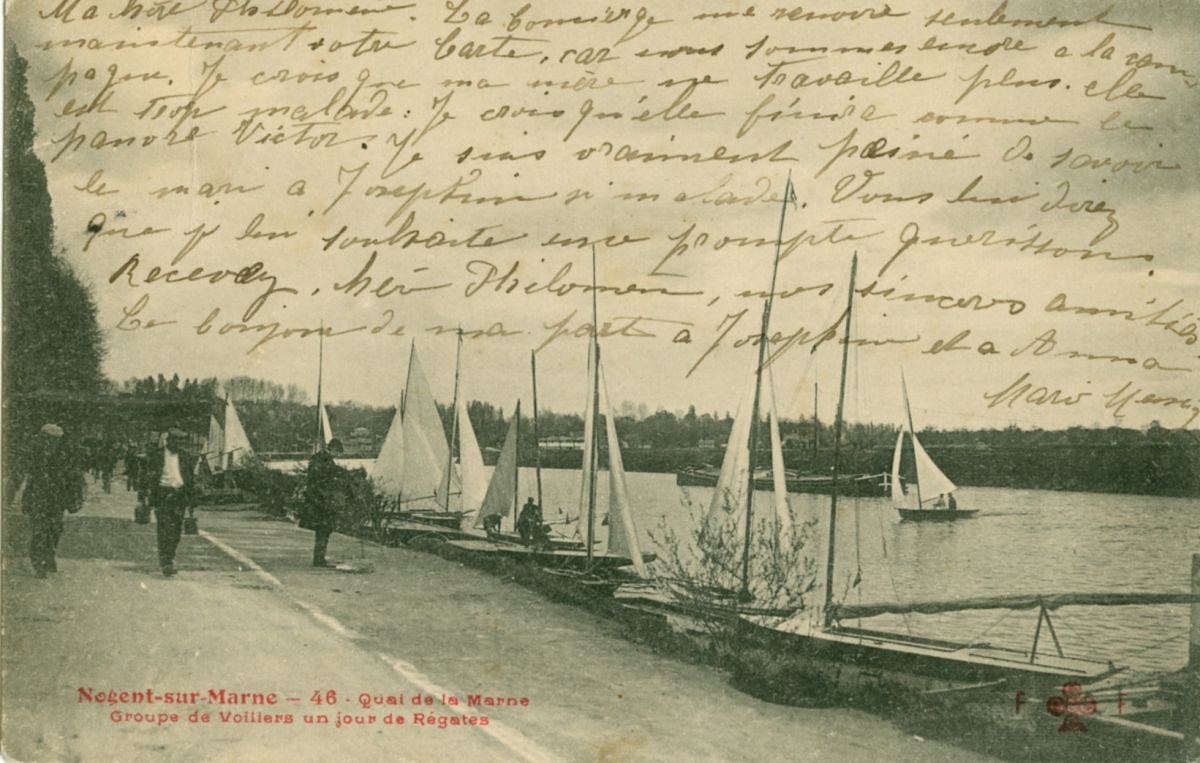 Ma Mère Philomène. La Concierge me renvoie seulement
maintenant votre Carte, car nous sommes encore a la cam
pagne. Je crois que ma mère ne travaille plus. elle
est trop malade. Je crois qu'elle finira comme le
pauvre Victor. Je suis vraiment peiné de savoir
le mari a Josephine si malade. Vous lui direz
que je lui souhaite une prompte guérisson.
Recevez, Mère Philomène, nos sincères amitiés
Le bonjour de ma part a Josephine et a Anna
Marie
Nogent-sur-Marne - 46 - Quai de la Marne
Groupe de Voiliers un jour de Régates
F F